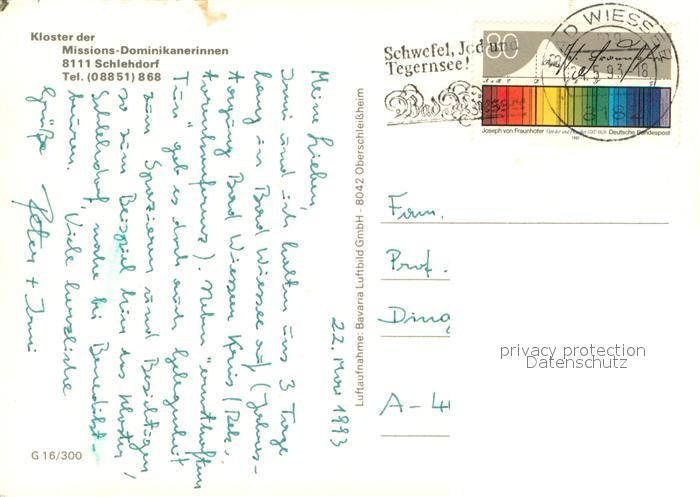 Kloster der
Missions-Dominikanerinnen
8111 Schlehdorf
Tel. (08851) 868
22. Mai 1993
Meine Lieben,
Irmi und ich halten uns 3 Tage
lang in Bad Wiessee auf (Jahres-
Bad Wiesseer Kreis
). Neben "ernsthaftem
Tun" gab es doch auch Gelegenheit
zum Spazieren und Besichtigen
so zum Beispiel hier das Kloster
Schlehdorf, nahe bei Benedikt-
beuren. Viele herzliche
Grüße Peter + Irmi
G 16/300
Luftaufnahme: Bavaria Luftbild GmbH - 8042 Oberschleißheim
Schwefel, Jod und
Tegernsee!
Bad Wiessee
BAD WIESSEE
8182
80
Joseph von Fraunhofer Deutsche Bundespost
Fam.
Prof.
Ding
A-4
privacy protection
Datenschutz